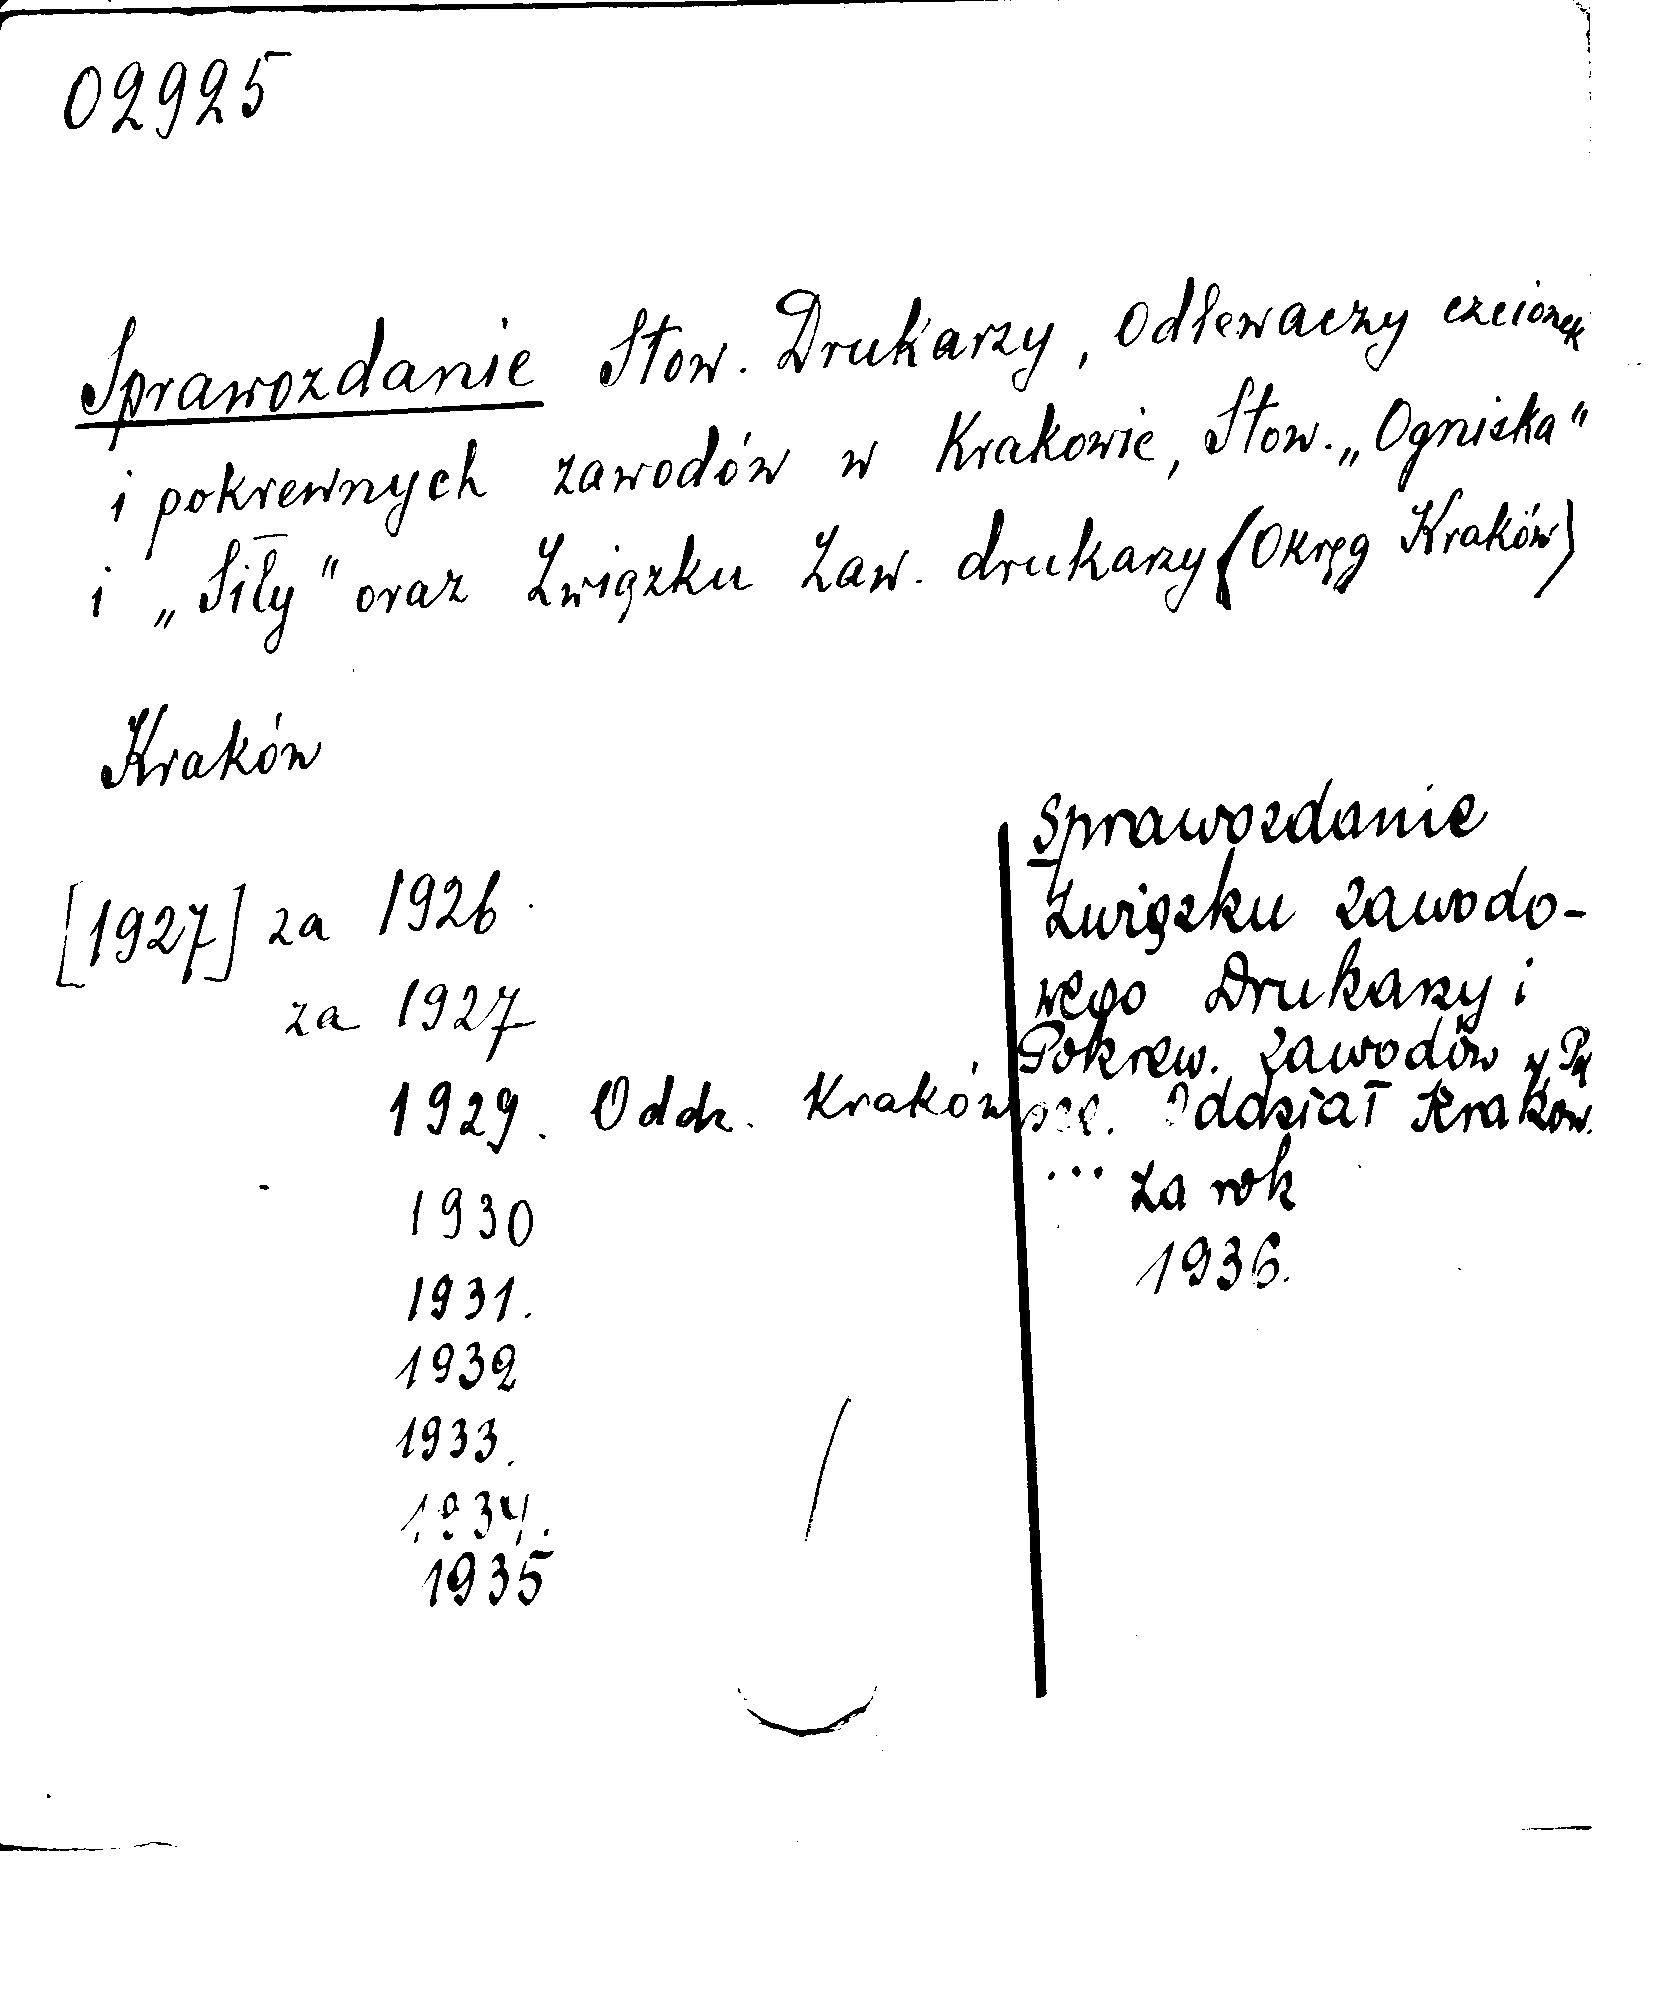 02925
Sprawozdanie Stow. Drukarzy, Odlewaczy czcionek
i pokrewnych zawodów w Krakowie, Stow. „Ogniska“
i „Siły“ oraz Związku Zaw. drukarzy (Okręg Kraków)
Kraków
[1927] za 1926.
za 1927
1929. Oddz. Kraków
1930
1931.
1932
1933.
1934.
1935
Sprawozdanie
Związku zawodo-
wego Drukarzy i
Pokrew. zawodów w
Oddział Kraków.
... za rok
1936.